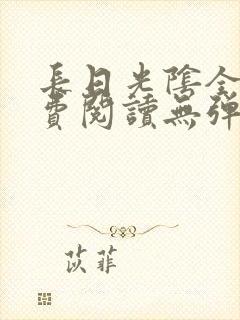 長日光陰全
費閱讀無彈
苡菲